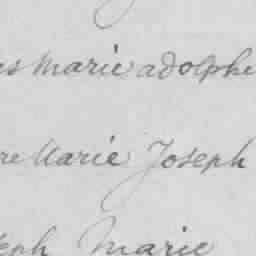 es Marie adolphe
re Marie Joseph
eph Marie